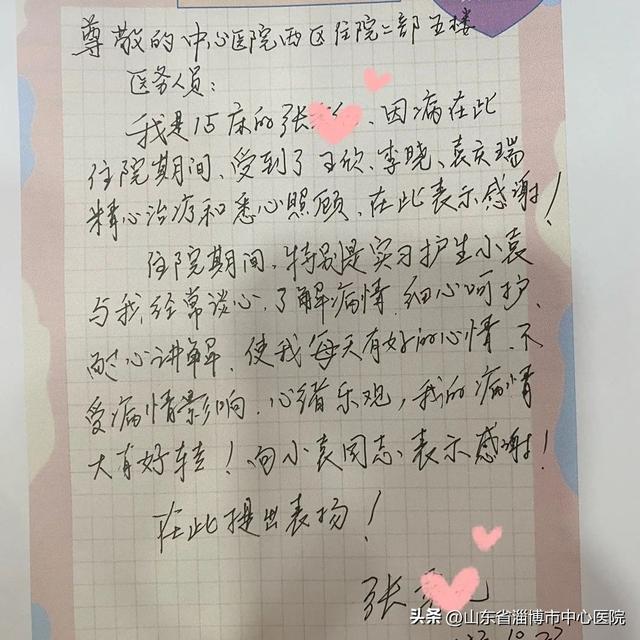 尊敬的中心医院西区住院二部五楼
医务人员：
我是15床的张 、因病在此
住院期间、受到了王欣、李晓、袁庆瑞
精心治疗和悉心照顾、在此表示感谢！
住院期间、特别是实习护生小袁
与我经常谈心、了解病情、细心呵护、
耐心讲解、使我每天有好的心情、不
受病情影响、心绪乐观，我的病情
大有好转！向小袁同志表示感谢！
在此提出表扬！
张
头条 @山东省淄博市中心医院